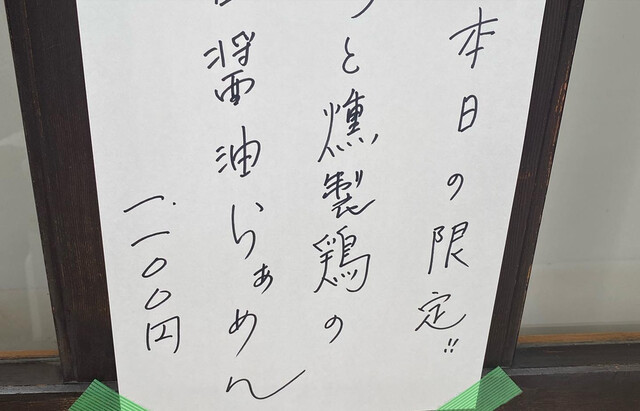 本日の限定!!
と燻製鶏の
醤油らぁめん
一、一〇〇円